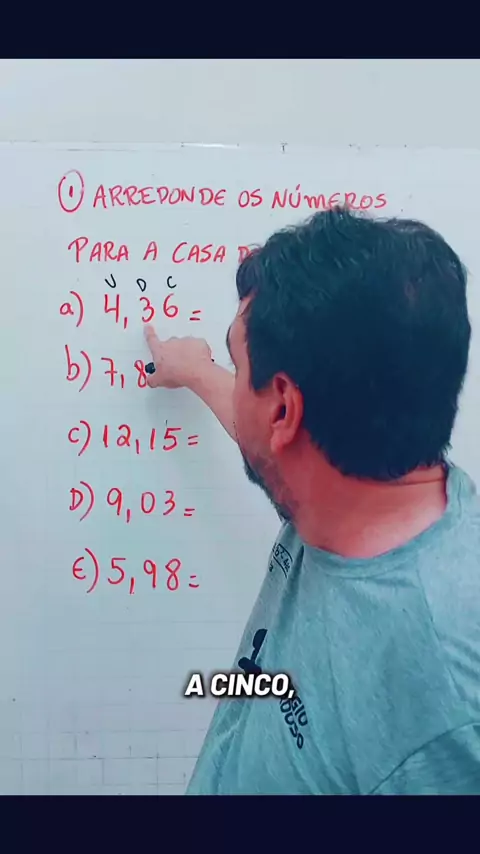 ① ARREDONDE OS NÚMEROS
PARA A CASA
U D C
a) 4,36 =
b) 7,8
c) 12,15 =
D) 9,03 =
E) 5,98 =
A CINCO,